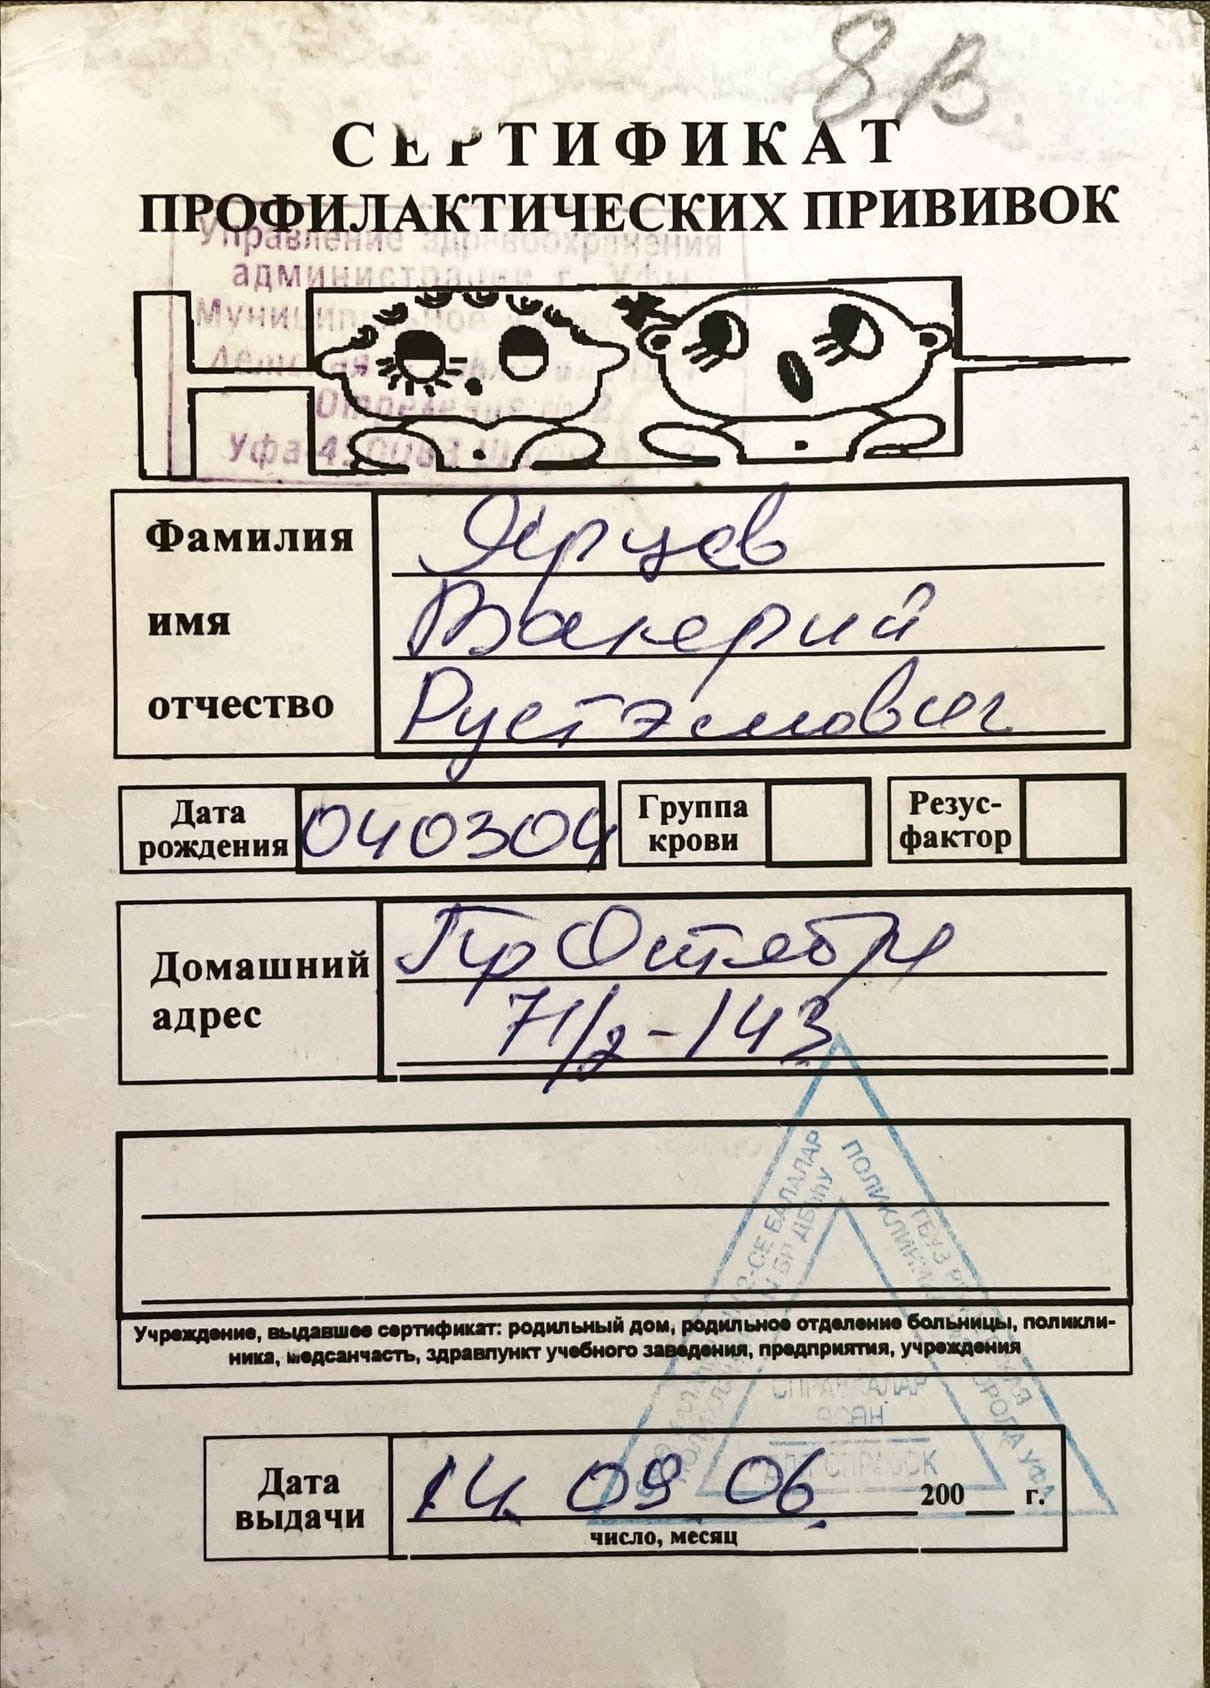 8В
СЕРТИФИКАТ
ПРОФИЛАКТИЧЕСКИХ ПРИВИВОК
Управление здравоохранения
администрации г. Уфы
Отделение № 2
Фамилия Ярцев
имя Валерий
отчество Рустэмович
Дата рождения 040304
Группа крови
Резус-фактор
Домашний адрес
Пр Октября
71/2-143
Учреждение, выдавшее сертификат: родильный дом, родильное отделение больницы, поликли-
ника, медсанчасть, здравпункт учебного заведения, предприятия, учреждения
2-СЕ БАЛАЛАР
ПОЛИКЛИНИКА
ГБУЗ
ГОРОДА УФА
СПРАВКАЛАР
ӨСӨН
ДЛЯ СПРАВОК
Дата выдачи 14 09 06 200 г.
число, месяц